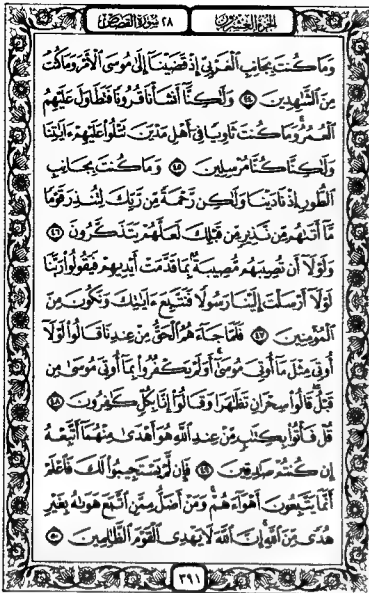 الجزء العشرون ٢٨ سورة القصص
وَمَا كُنتَ بِجَانِبِ ٱلْغَرْبِيِّ إِذْ قَضَيْنَآ إِلَىٰ مُوسَى ٱلْأَمْرَ وَمَا كُنتَ
مِنَ ٱلشَّٰهِدِينَ ٤٤ وَلَٰكِنَّآ أَنشَأْنَا قُرُونًا فَتَطَاوَلَ عَلَيْهِمُ
ٱلْعُمُرُ ۚ وَمَا كُنتَ ثَاوِيًا فِىٓ أَهْلِ مَدْيَنَ تَتْلُوا۟ عَلَيْهِمْ ءَايَٰتِنَا
وَلَٰكِنَّا كُنَّا مُرْسِلِينَ ٤٥ وَمَا كُنتَ بِجَانِبِ
ٱلطُّورِ إِذْ نَادَيْنَا وَلَٰكِن رَّحْمَةً مِّن رَّبِّكَ لِتُنذِرَ قَوْمًا
مَّآ أَتَىٰهُم مِّن نَّذِيرٍ مِّن قَبْلِكَ لَعَلَّهُمْ يَتَذَكَّرُونَ ٤٦
وَلَوْلَآ أَن تُصِيبَهُم مُّصِيبَةٌۢ بِمَا قَدَّمَتْ أَيْدِيهِمْ فَيَقُولُوا۟ رَبَّنَا
لَوْلَآ أَرْسَلْتَ إِلَيْنَا رَسُولًا فَنَتَّبِعَ ءَايَٰتِكَ وَنَكُونَ مِنَ
ٱلْمُؤْمِنِينَ ٤٧ فَلَمَّا جَآءَهُمُ ٱلْحَقُّ مِنْ عِندِنَا قَالُوا۟ لَوْلَآ
أُوتِىَ مِثْلَ مَآ أُوتِىَ مُوسَىٰٓ ۚ أَوَلَمْ يَكْفُرُوا۟ بِمَآ أُوتِىَ مُوسَىٰ مِن
قَبْلُ ۖ قَالُوا۟ سِحْرَانِ تَظَٰهَرَا وَقَالُوٓا۟ إِنَّا بِكُلٍّ كَٰفِرُونَ ٤٨
قُلْ فَأْتُوا۟ بِكِتَٰبٍ مِّنْ عِندِ ٱللَّهِ هُوَ أَهْدَىٰ مِنْهُمَآ أَتَّبِعْهُ
إِن كُنتُمْ صَٰدِقِينَ ٤٩ فَإِن لَّمْ يَسْتَجِيبُوا۟ لَكَ فَٱعْلَمْ
أَنَّمَا يَتَّبِعُونَ أَهْوَآءَهُمْ ۚ وَمَنْ أَضَلُّ مِمَّنِ ٱتَّبَعَ هَوَىٰهُ بِغَيْرِ
هُدًى مِّنَ ٱللَّهِ ۚ إِنَّ ٱللَّهَ لَا يَهْدِى ٱلْقَوْمَ ٱلظَّٰلِمِينَ ٥٠
٣٩١